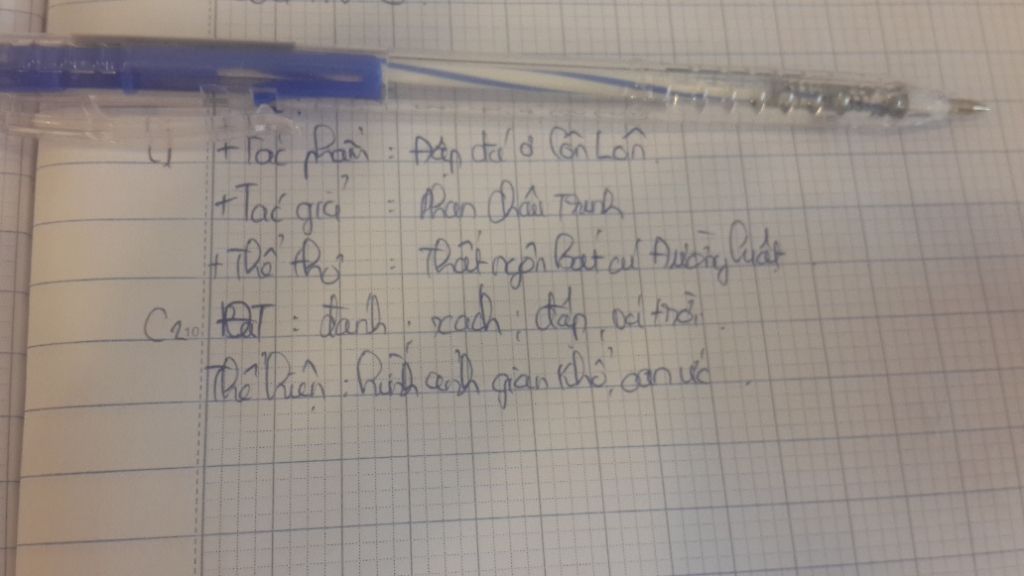 + Tác phẩm : Đập đá ở Côn Lôn
+ Tác giả : Phan Châu Trinh
+ Thể thơ : Thất ngôn bát cú Đường luật
ĐT : đánh , xách , đập
Thể hiện : hình ảnh gian khổ,